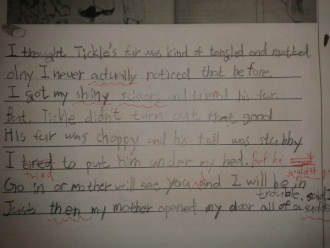 I thought Tickle's fur was kind of tangled and matted
olny I never actually noticed that before.
I got my shiny scissors and trimd his fur.
But. Tickle didn't turn out that good
His fur was choppy and his tail was stubby
I tired to put him under my bed. but he
tried wouldn't
Go in or mother will see you and I will be in
trouble, said I
Just then my mother opened my door all of a